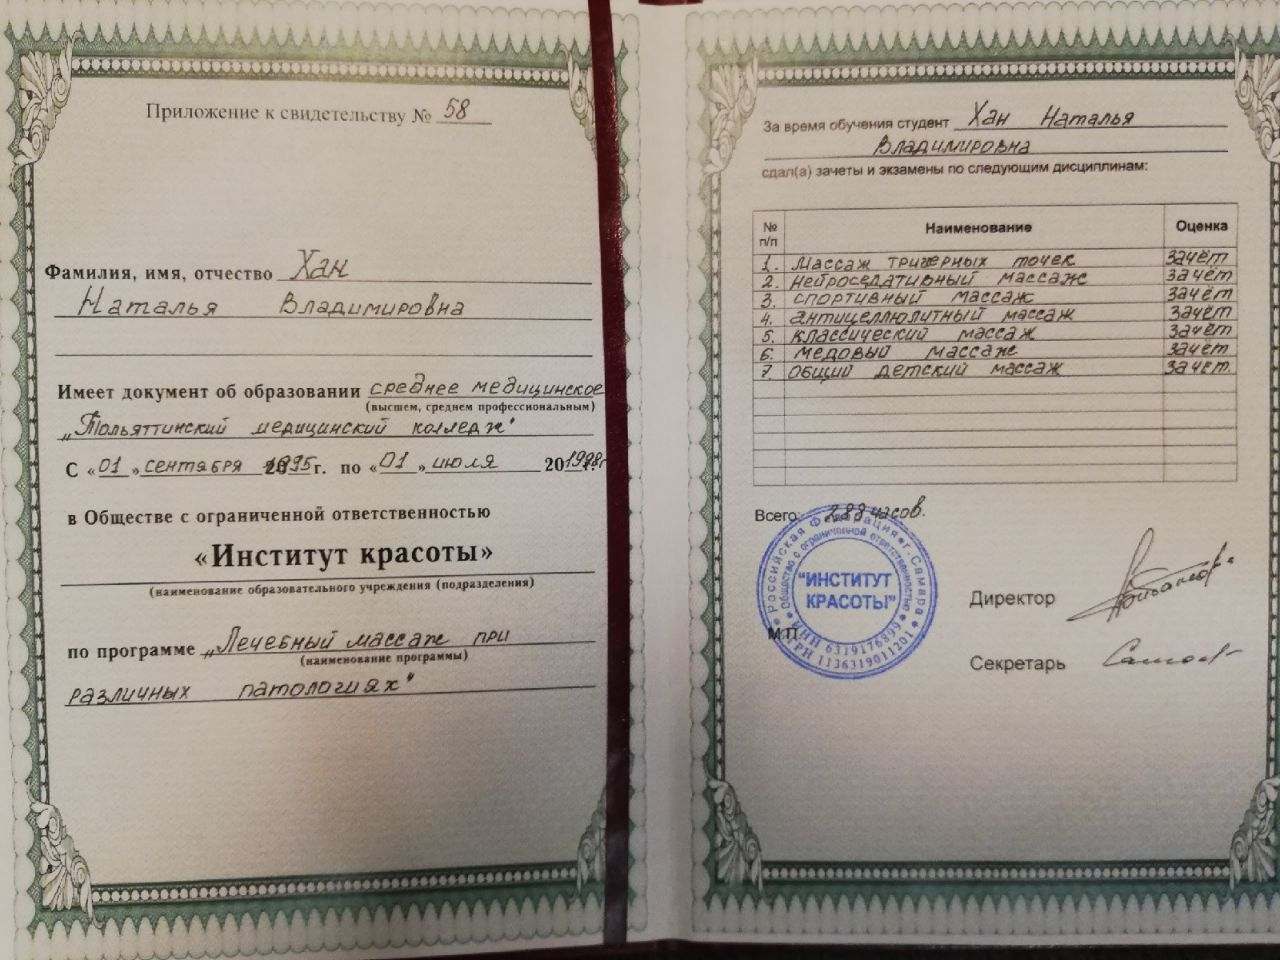 Приложение к свидетельству № 58
Фамилия, имя, отчество Хан
Наталья Владимировна
Имеет документ об образовании среднее медицинское
(высшем, среднем профессиональным)
„Тольяттинский медицинский колледж"
С «01» сентября 1995г. по «01» июля 1998г
в Обществе с ограниченной ответственностью
«Институт красоты»
(наименование образовательного учреждения (подразделения)
по программе „Лечебный массаж при
(наименование программы)
различных патологиях"
За время обучения студент Хан Наталья
Владимировна
сдал(а) зачеты и экзамены по следующим дисциплинам:
№ п/п Наименование Оценка
1. Массаж тригерных точек зачёт
2. нейроседативный массаж зачёт
3. спортивный массаж зачёт
4. антицеллюлитный массаж зачёт
5. классический массаж зачёт
6. медовый массаж зачёт
7. общий детский массаж зачёт.
Всего: 288 часов.
Российская Федерация г. Самара
Общество с ограниченной ответственностью
"ИНСТИТУТ
КРАСОТЫ"
ИНН 6319176899
ОГРН 1136319011201
М.П.
Директор
Секретарь